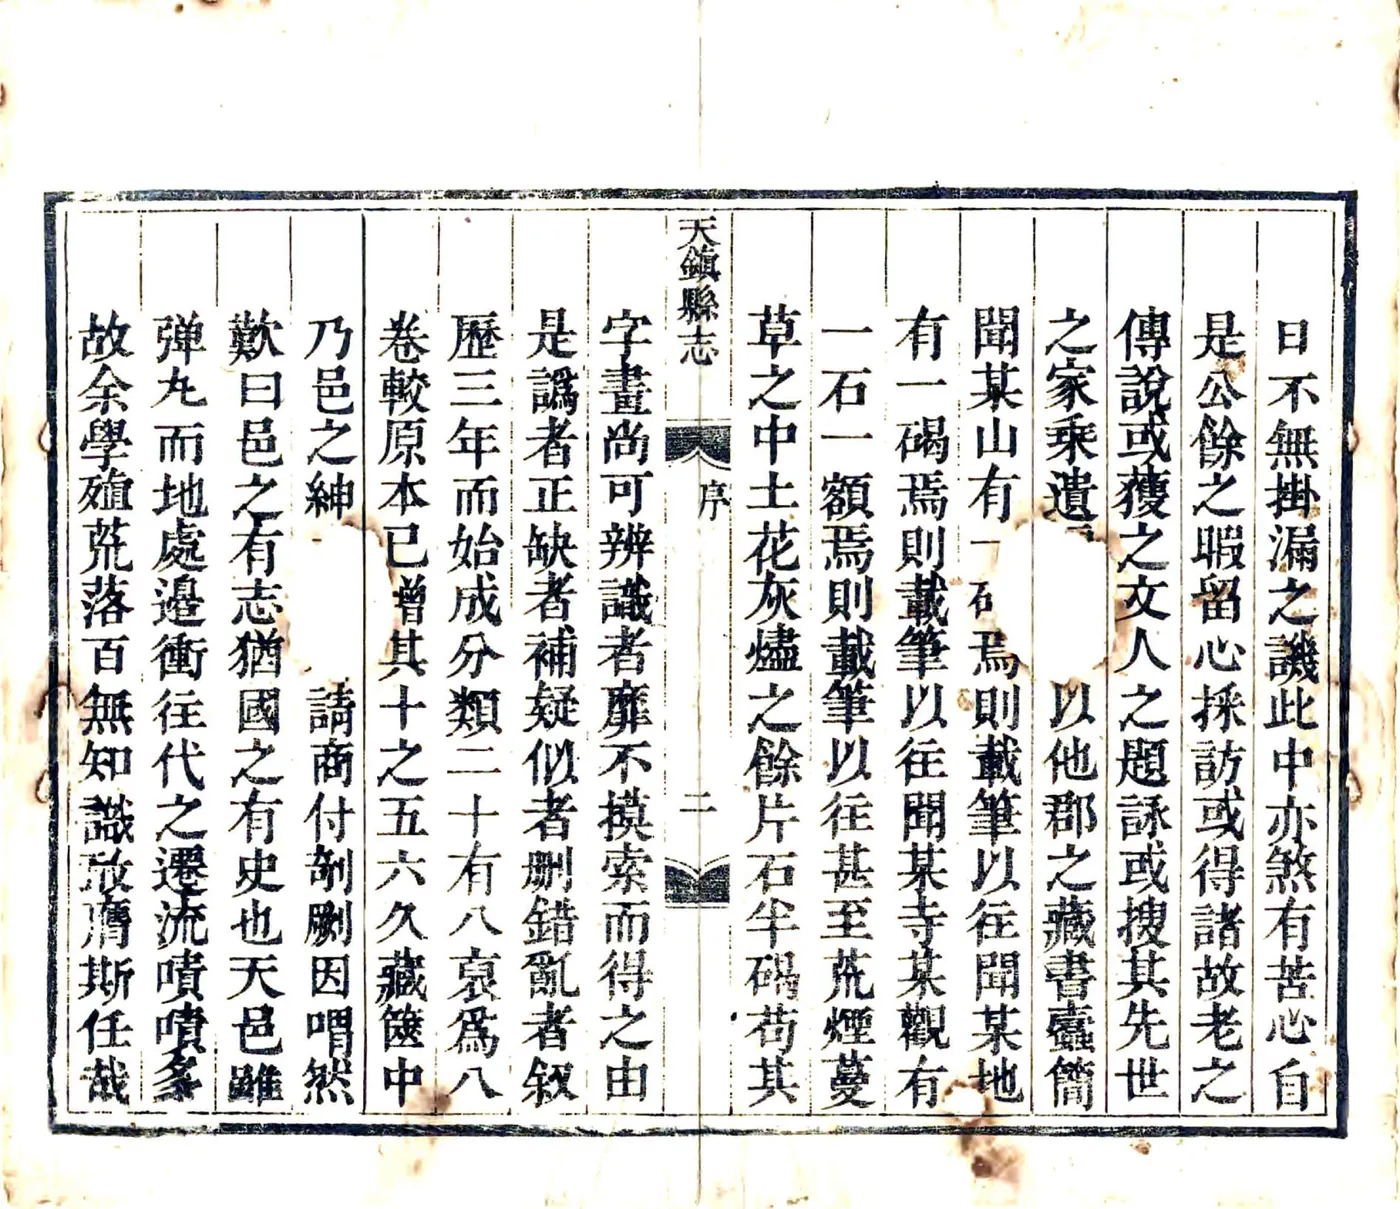 日不無掛漏之譏此中亦煞有苦心自
是公餘之暇留心採訪或得諸故老之
傳說或獲之文人之題詠或搜其先世
之家乘遺以他郡之藏書蠹簡
聞某山有一焉則載筆以往聞某地
有一碣焉則載筆以往聞某寺某觀有
一石一額焉則載筆以往甚至荒煙蔓
草之中土花灰燼之餘片石半碣苟其
天鎮縣志
序
二
字畫尚可辨識者靡不摸索而得之由
是譌者正缺者補疑似者刪錯亂者敘
歷三年而始成分類二十有八裒為八
卷較原本已增其十之五六久藏篋中
乃邑之紳請商付剞劂因喟然
歎曰邑之有志猶國之有史也天邑雖
弹丸而地處邊衝往代之遷流嘖嘖多
故余學殖荒落百無知識敢膺斯任哉